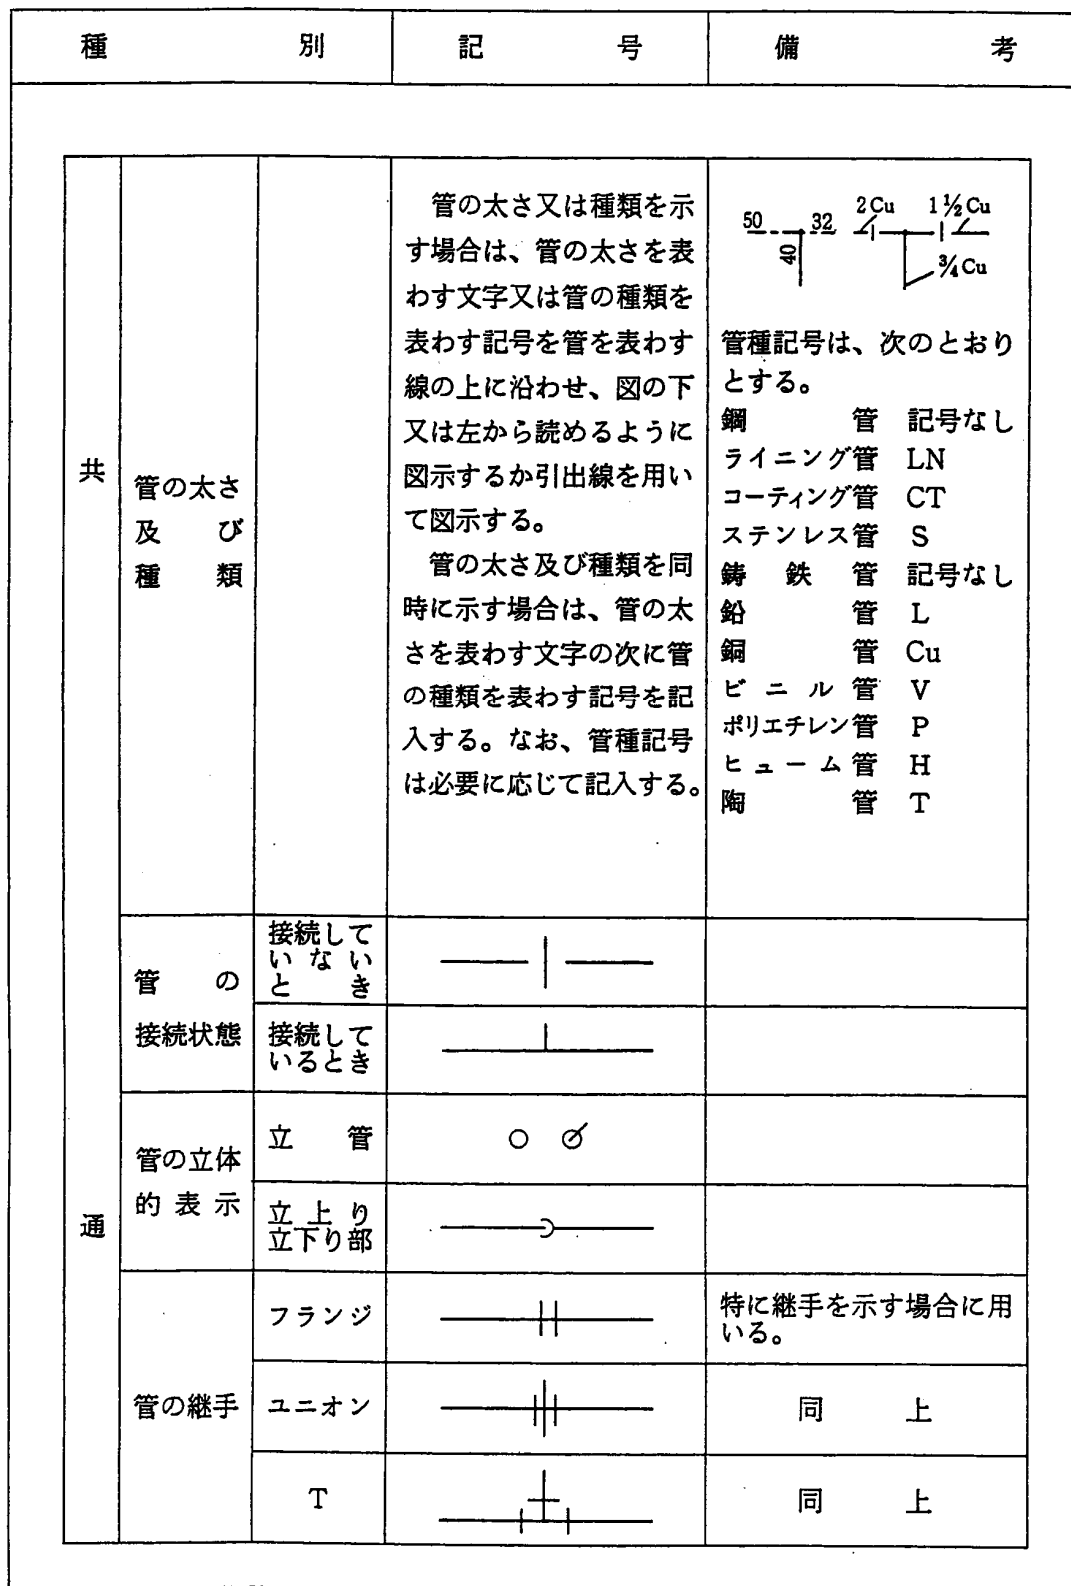 種　別　記　号　備　考
共
通
管の太さ
及び
種類
管の太さ又は種類を示
す場合は、管の太さを表
わす文字又は管の種類を
表わす記号を管を表わす
線の上に沿わせ、図の下
又は左から読めるように
図示するか引出線を用い
て図示する。
管の太さ及び種類を同
時に示す場合は、管の太
さを表わす文字の次に管
の種類を表わす記号を記
入する。なお、管種記号
は必要に応じて記入する。
50　32　2Cu　1½Cu
40　¾Cu
管種記号は、次のとおり
とする。
鋼管　記号なし
ライニング管　LN
コーティング管　CT
ステンレス管　S
鋳鉄管　記号なし
鉛管　L
銅管　Cu
ビニル管　V
ポリエチレン管　P
ヒューム管　H
陶管　T
管の
接続状態
接続して
いない
とき
接続して
いるとき
管の立体
的表示
立管
立上り
立下り部
管の継手
フランジ
特に継手を示す場合に用
いる。
ユニオン　同上
T　同上